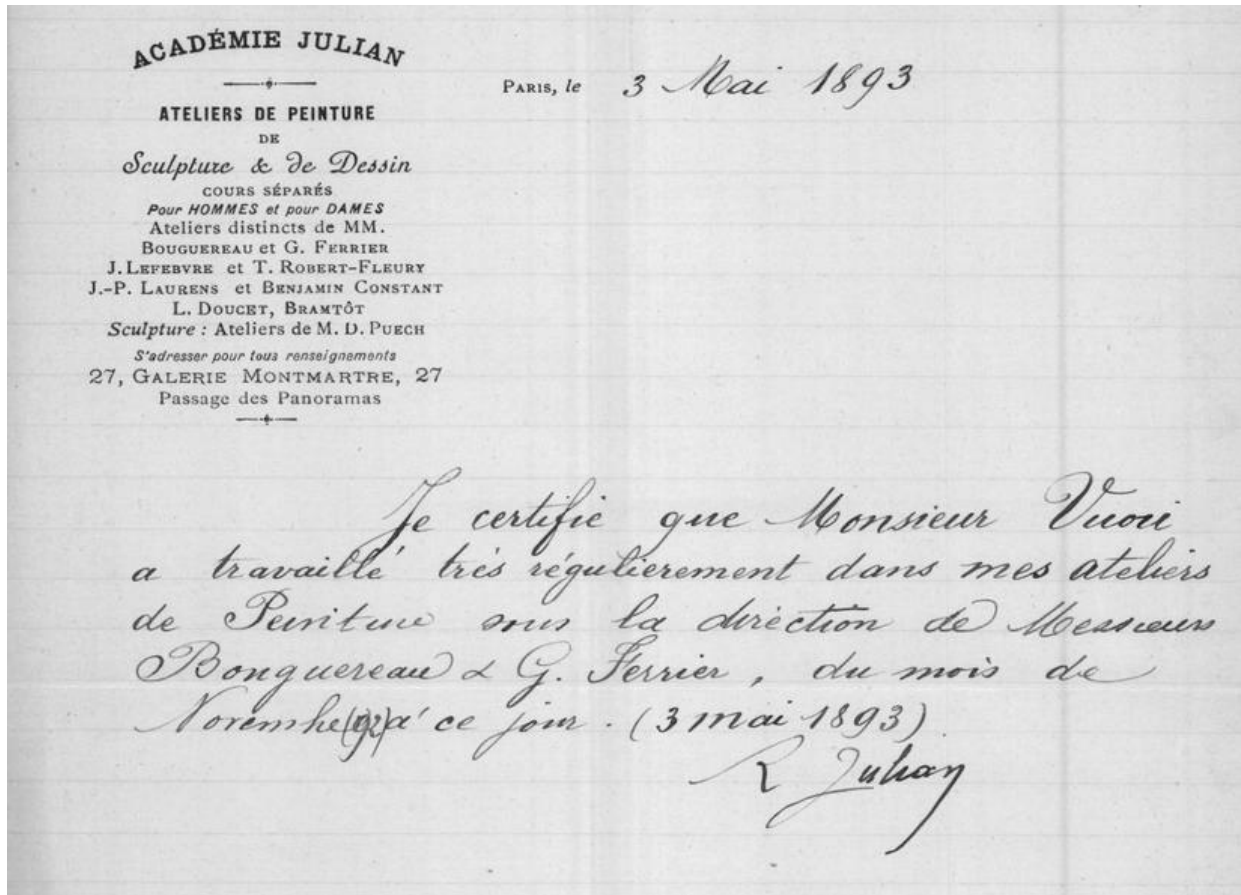 ACADÉMIE JULIAN
PARIS, le 3 Mai 1893
ATELIERS DE PEINTURE
DE
Sculpture & de Dessin
COURS SÉPARÉS
Pour HOMMES et pour DAMES
Ateliers distincts de MM.
BOUGUEREAU et G. FERRIER
J. LEFEBVRE et T. ROBERT-FLEURY
J.-P. LAURENS et BENJAMIN CONSTANT
L. DOUCET, BRAMTÔT
Sculpture : Ateliers de M. D. PUECH
S'adresser pour tous renseignements
27, GALERIE MONTMARTRE, 27
Passage des Panoramas
Je certifie que Monsieur Vuori
a travaillé très régulierement dans mes ateliers
de Peinture sous la direction de Messieurs
Bouguereau & G. Ferrier, du mois de
Novembre (92) à ce jour. (3 mai 1893)
R Julian